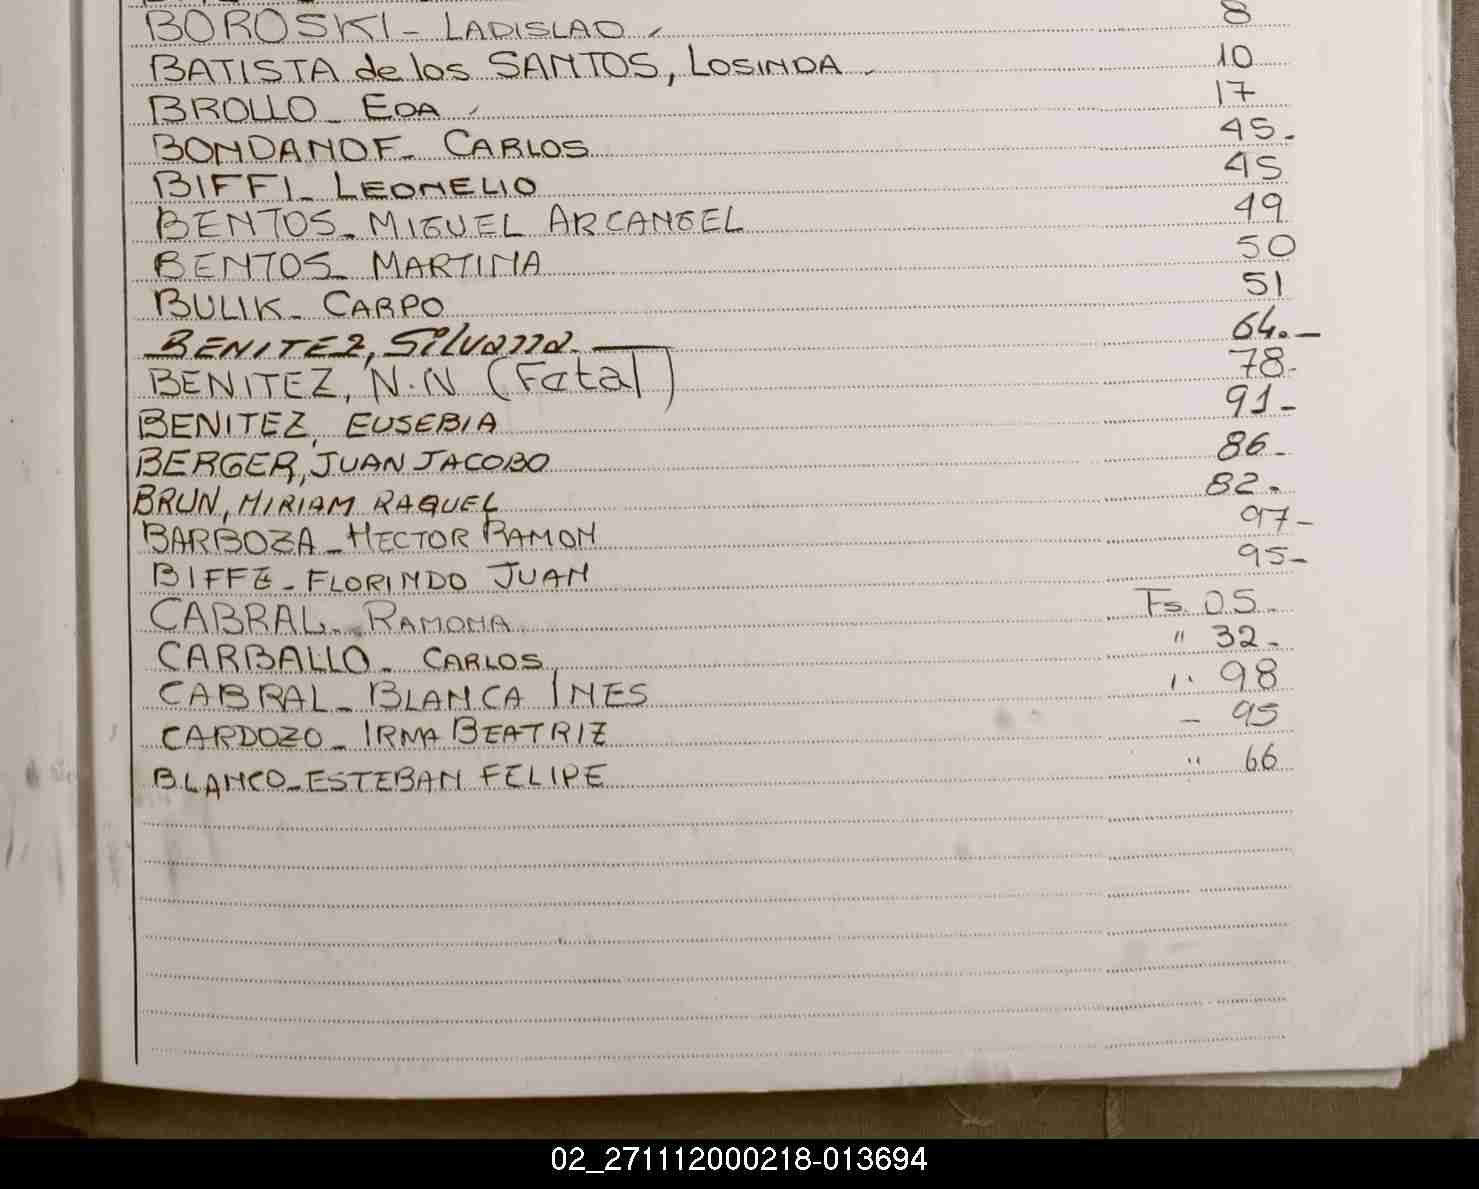 BOROSKI - LADISLAO 8
BATISTA de los SANTOS, LOSINDA 10
BROLLO - EDA 17
BONDANOF - CARLOS 45.
BIFFI - LEONELIO 45
BENTOS - MIGUEL ARCANGEL 49
BENTOS - MARTINA 50
BULIK - CARPO 51
BENITEZ, Silvana. — 64.-
BENITEZ, N.N (Fetal) 78-
BENITEZ, EUSEBIA 91-
BERGER, JUAN JACOBO 86-
BRUN, MIRIAM RAQUEL 82.
BARBOZA - HECTOR RAMON 97-
BIFFE - FLORINDO JUAN 95-
CABRAL - RAMONA Fs. 05.
CARBALLO - CARLOS " 32.
CABRAL - BLANCA INES " 98
CARDOZO - IRMA BEATRIZ - 95
BLANCO - ESTEBAN FELIPE " 66
02_271112000218-013694